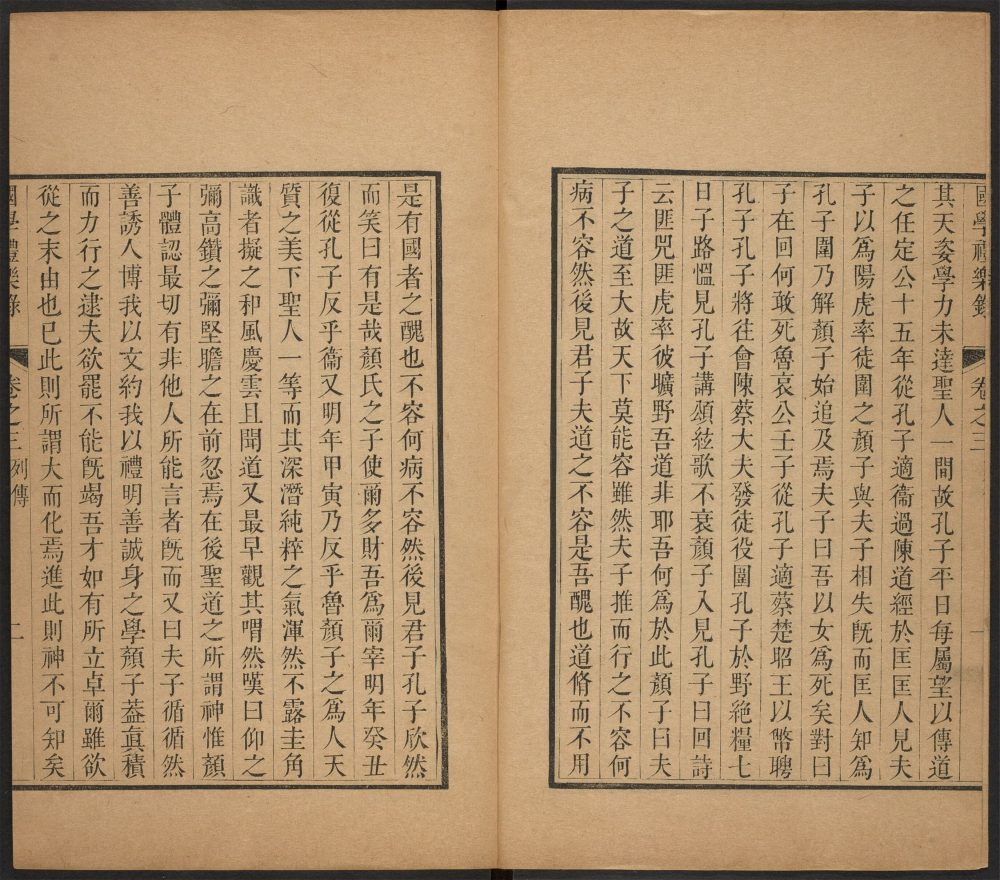 國學禮樂錄 卷之三 一
其天姿學力未達聖人一間故孔子平日每屬望以傳道
之任定公十五年從孔子適衞過陳道經於匡匡人見夫
子以爲陽虎率徒圍之顏子與夫子相失旣而匡人知爲
孔子圍乃解顏子始追及焉夫子曰吾以女爲死矣對曰
子在回何敢死魯哀公壬子從孔子適蔡楚昭王以幣聘
孔子孔子將往會陳蔡大夫發徒役圍孔子於野絶糧七
日子路慍見孔子講頌絃歌不衰顏子入見孔子曰回詩
云匪兕匪虎率彼壙野吾道非耶吾何爲於此顏子曰夫
子之道至大故天下莫能容雖然夫子推而行之不容何
病不容然後見君子夫道之不容是吾醜也道脩而不用
是有國者之醜也不容何病不容然後見君子孔子欣然
而笑曰有是哉顏氏之子使爾多財吾爲爾宰明年癸丑
復從孔子反乎衞又明年甲寅乃反乎魯顏子之爲人天
質之美下聖人一等而其深潛純粹之氣渾然不露圭角
識者擬之和風慶雲且聞道又最早觀其喟然嘆曰仰之
彌高鑽之彌堅瞻之在前忽焉在後聖道之所謂神惟顏
子體認最切有非他人所能言者旣而又曰夫子循循然
善誘人博我以文約我以禮明善誠身之學顏子葢眞積
而力行之逮夫欲罷不能旣竭吾才如有所立卓爾雖欲
從之末由也已此則所謂大而化焉進此則神不可知矣
國學禮樂錄 卷之三列傳 二